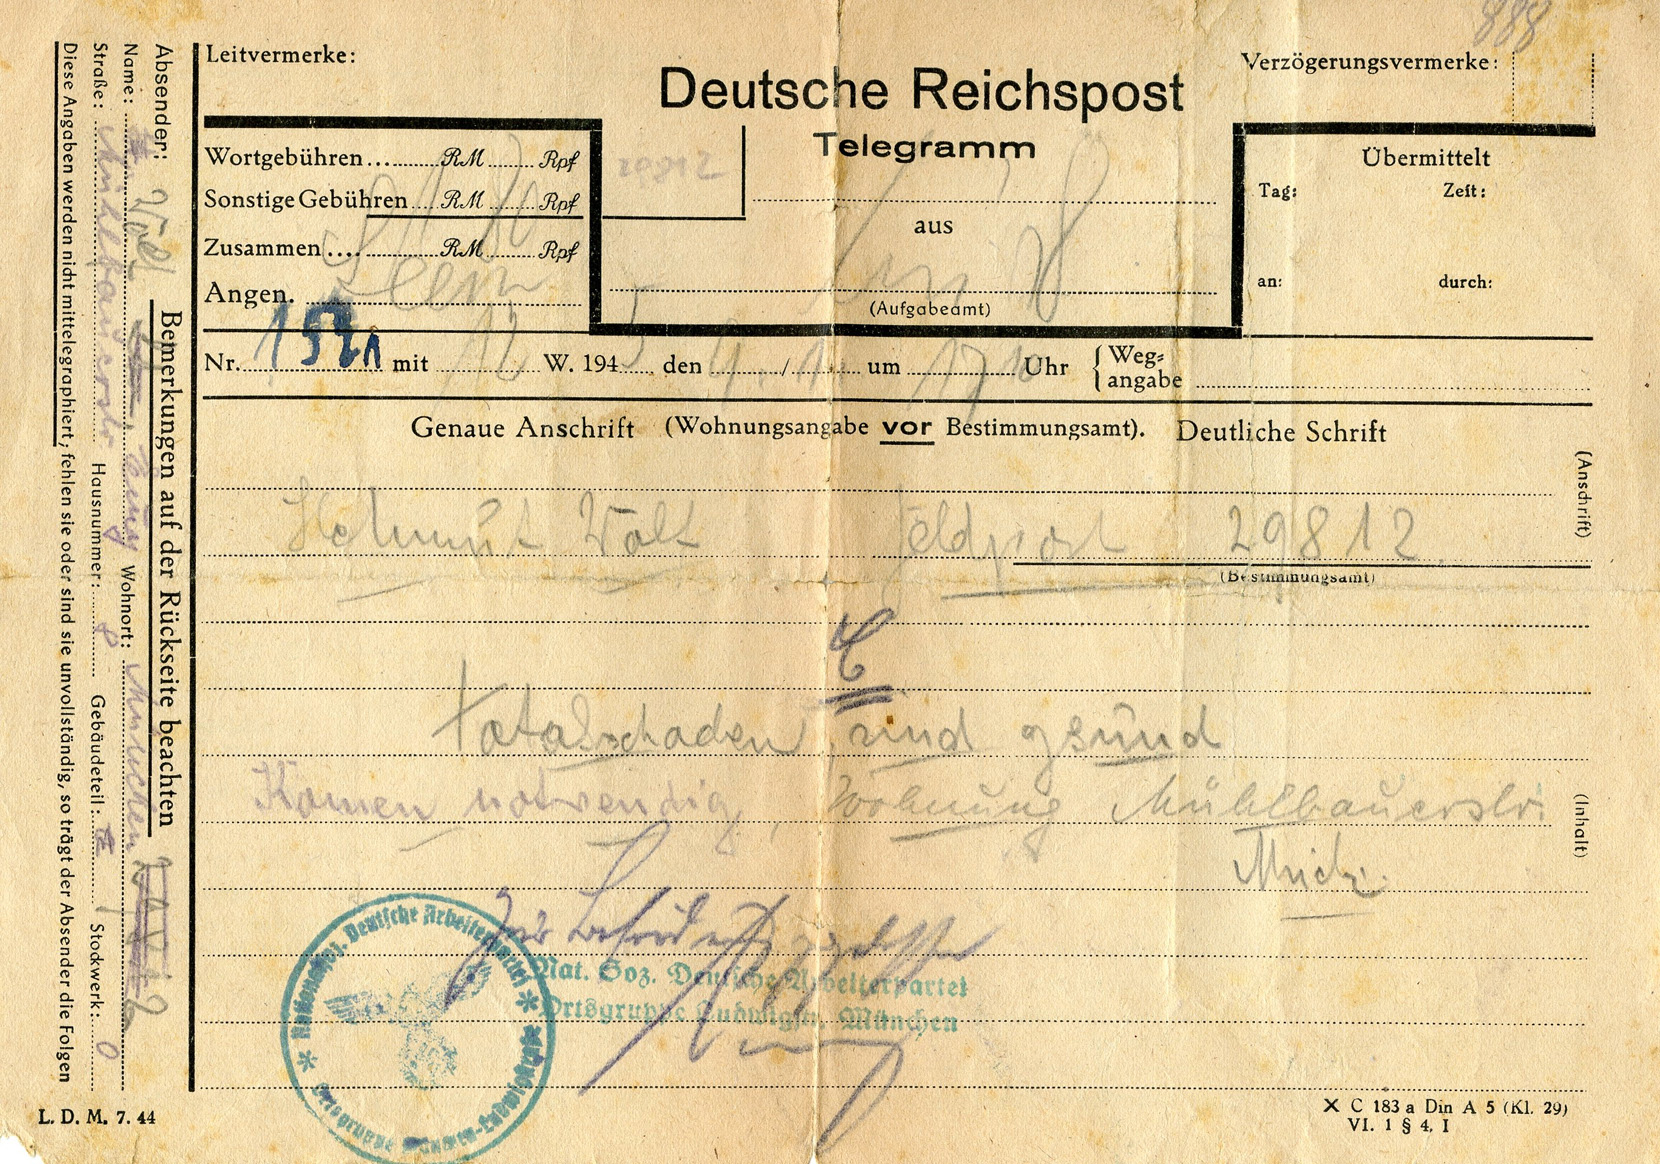 888
Leitvermerke:
Deutsche Reichspost
Verzögerungsvermerke:
Telegramm
Wortgebühren .... RM ...... Rpf
29812
Sonstige Gebühren .... RM ...... Rpf
Zusammen .... RM ...... Rpf
Angen.
aus
(Aufgabeamt)
Übermittelt
Tag: Zeit:
an: durch:
Nr. mit 12 W. 194 5 den 9. / 1. um 17 10 Uhr { Weg-
angabe
Genaue Anschrift (Wohnungsangabe vor Bestimmungsamt). Deutliche Schrift
(Anschrift)
Helmut Wölt Feldpost 29812
(Bestimmungsamt)
totalschaden sind gsund
Komen notwendig, Wohnung Mühlbauerstr.
(Inhalt)
Nat. Soz. Deutsche Arbeiterpartei
Ortsgruppe Ludwigstr. München
Nationalsoz. Deutsche Arbeiterpartei
Ortsgruppe München-Ludwigstr.
Absender:
Name: Wohnort: München
Straße: Mühlbauerstr Hausnummer: 8 Gebäudeteil: Stockwerk: 0
Diese Angaben werden nicht mittelegraphiert; fehlen sie oder sind sie unvollständig, so trägt der Absender die Folgen
Bemerkungen auf der Rückseite beachten
L. D. M. 7. 44
X C 183 a Din A 5 (Kl. 29)
VI. 1 § 4, I